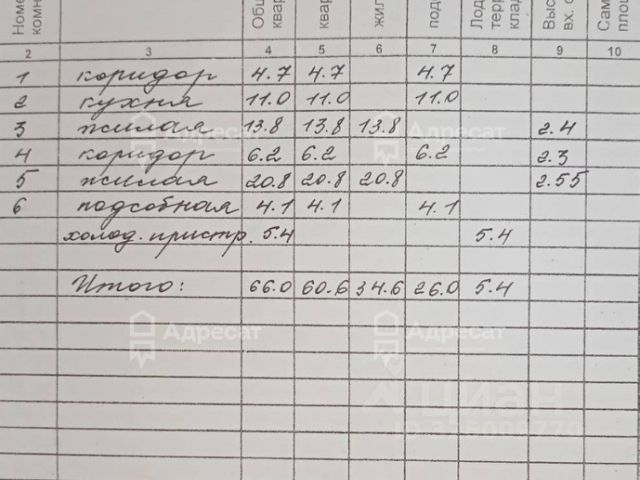 Номе комн Общ квар квар жил под Лод терр клад Выс вх. с Сам площ
2 3 4 5 6 7 8 9 10
1 коридор 4.7 4.7 4.7
2 кухня 11.0 11.0 11.0
3 жилая 13.8 13.8 13.8 2.4
4 коридор 6.2 6.2 6.2 2.3
5 жилая 20.8 20.8 20.8 2.55
6 подсобная 4.1 4.1 4.1
холод. пристр. 5.4 5.4
Итого: 66.0 60.6 34.6 26.0 5.4
Адресат Адресат
Адресат Адресат
Циан